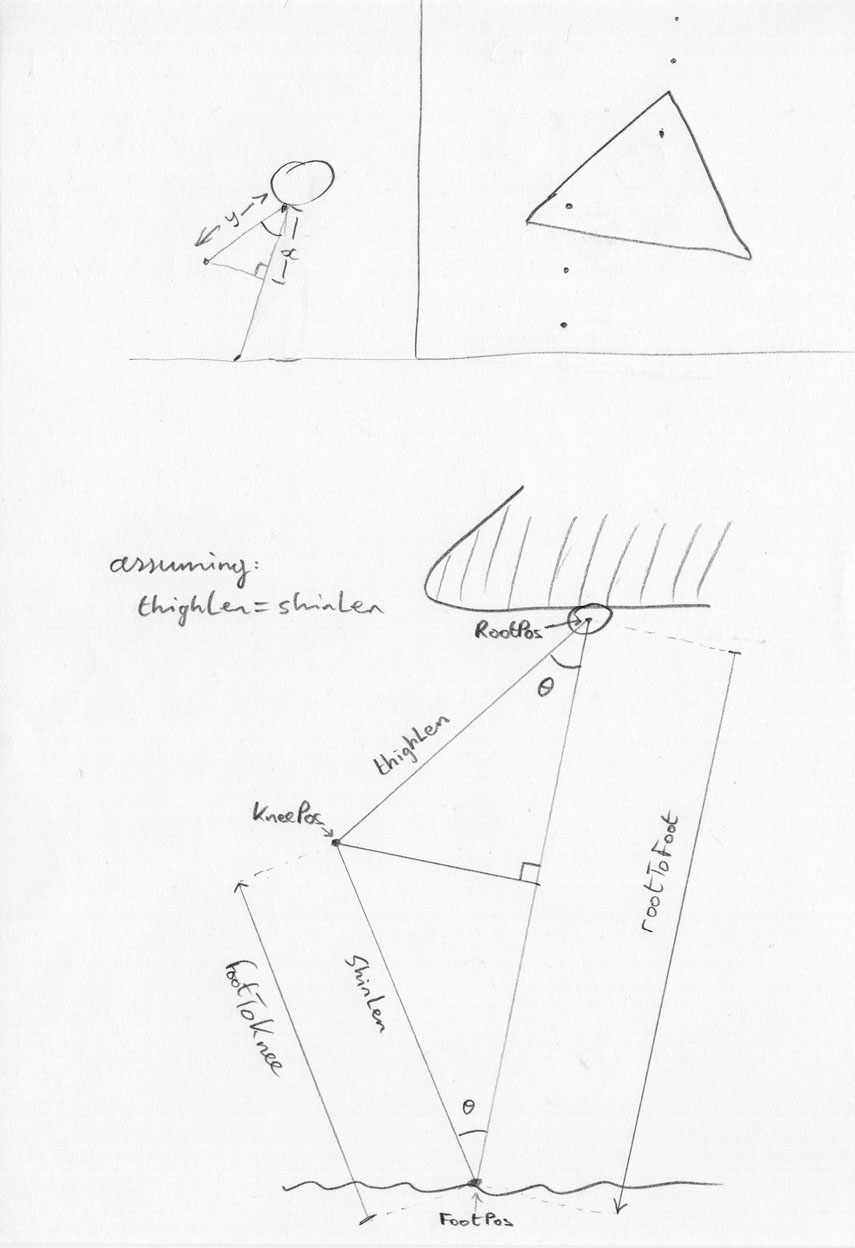 y
x
assuming:
thighLen = shinLen
RootPos
θ
thighLen
KneePos
rootToFoot
footToKnee
ShinLen
θ
FootPos